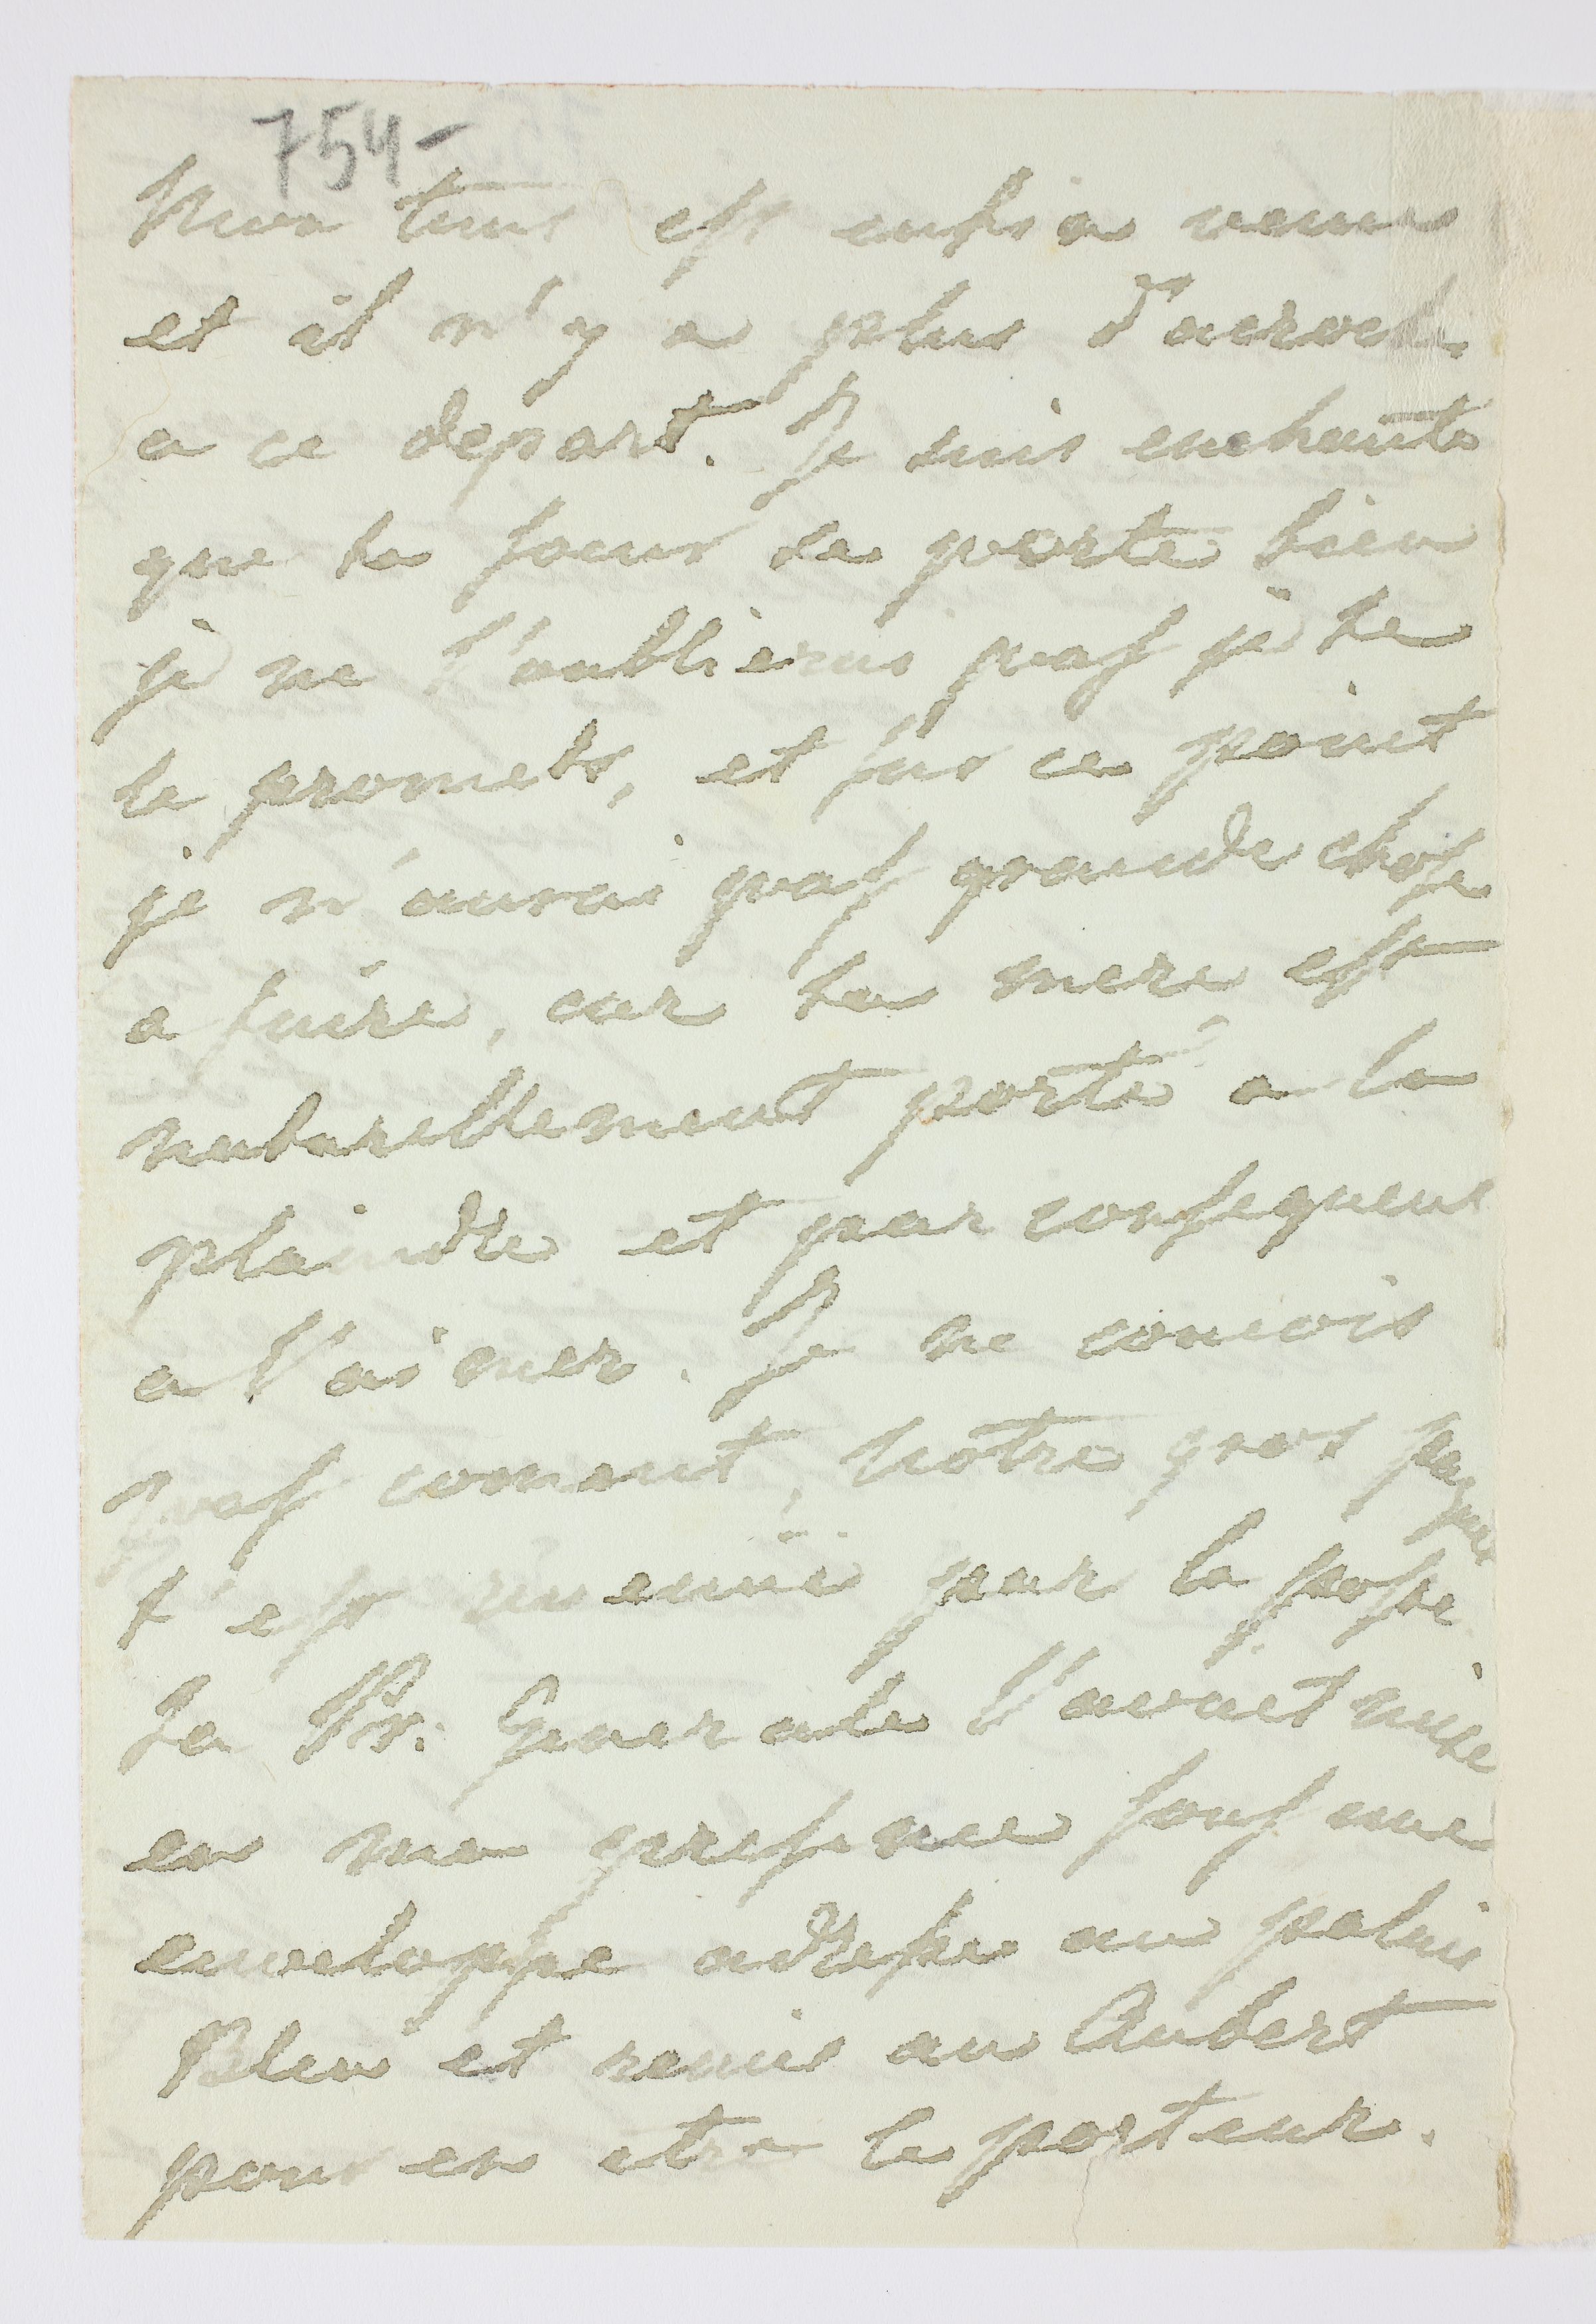 754-
est enfin venu
et il n'y a plus d'acroch
a ce depart. Je suis enchante
que ta soeur se porte bien
je ne l'oublierai pas je te
le promets, et sur ce point
je n'aurai pas grande chose
a faire, car ta mere est
naturellement porté a la
plaindre et par consequent
a l'aimer. Je ne concois
pas comment, notre gros paquet
t'est par la poste
Le Pr. l'avait mise
en ma presence sous une
enveloppe adresse au palais
Bleu et remis au Aubert
pour en etre le porteur.